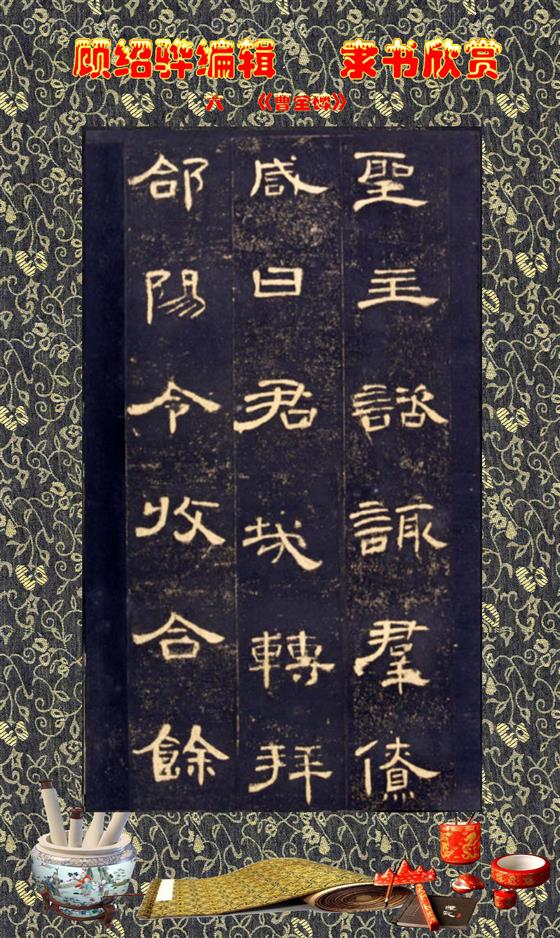 顾绍骅编辑 隶书欣赏
六 《曹全碑》
聖主諮諏羣僚
咸曰君哉轉拜
郃陽令收合餘